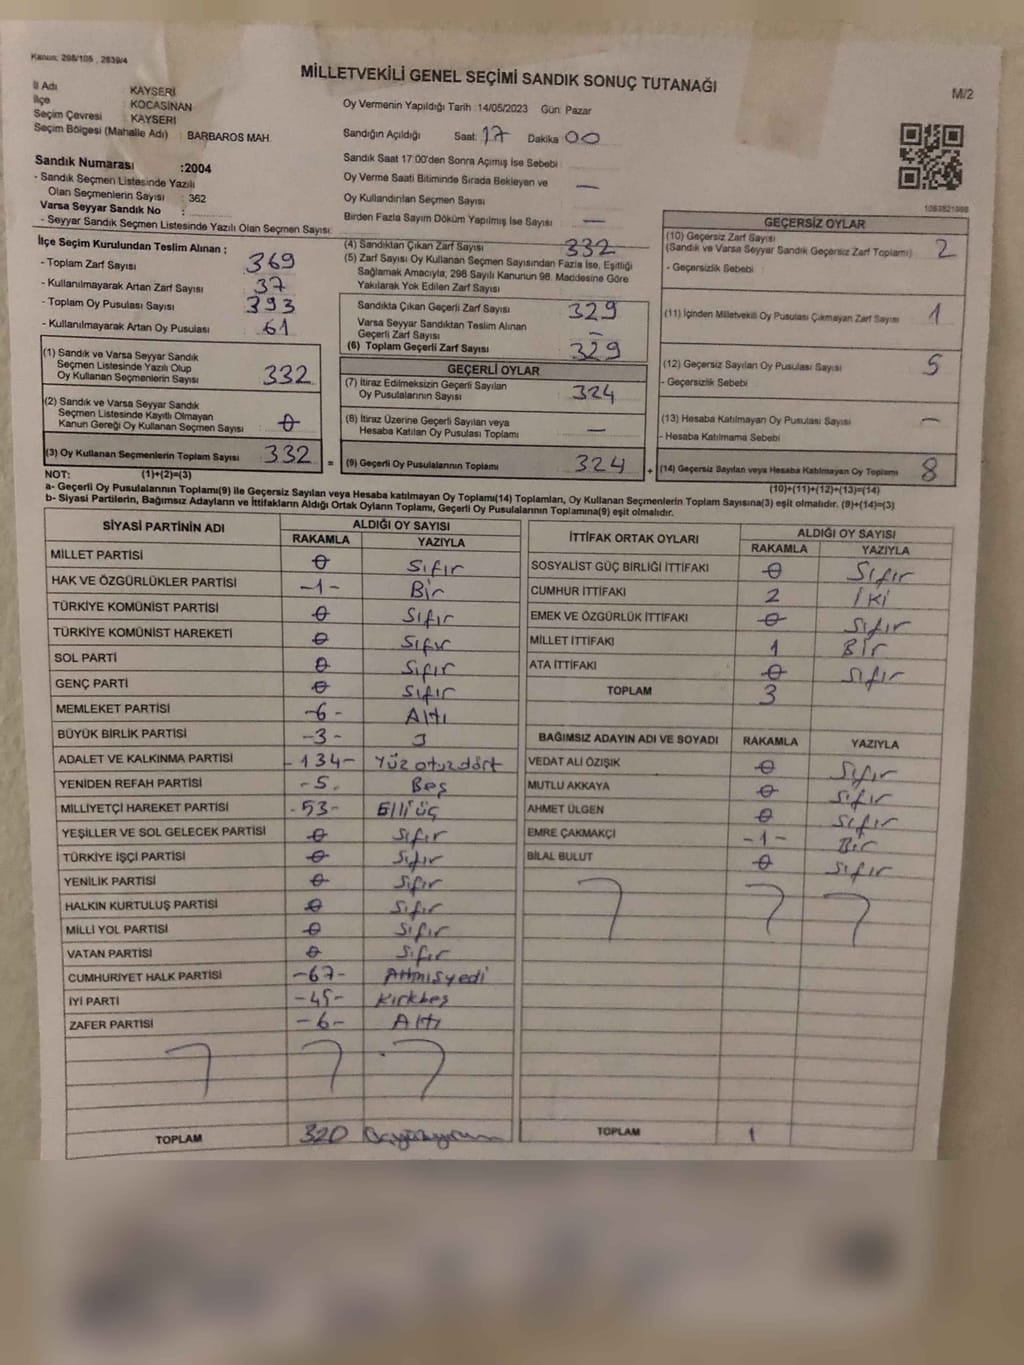 Kanun: 298/105 , 2839/4
MİLLETVEKİLİ GENEL SEÇİMİ SANDIK SONUÇ TUTANAĞI
M/2
İl Adı KAYSERİ
İlçe KOCASİNAN
Seçim Çevresi KAYSERİ
Seçim Bölgesi (Mahalle Adı) BARBAROS MAH.
Sandık Numarası :2004
- Sandık Seçmen Listesinde Yazılı
Olan Seçmenlerin Sayısı : 362
Varsa Seyyar Sandık No :
- Seyyar Sandık Seçmen Listesinde Yazılı Olan Seçmen Sayısı:
Oy Vermenin Yapıldığı Tarih 14/05/2023 Gün: Pazar
Sandığın Açıldığı Saat: 17 Dakika 00
Sandık Saat 17:00'den Sonra Açımış İse Sebebi
Oy Verme Saati Bitiminde Sırada Bekleyen ve —
Oy Kullandırılan Seçmen Sayısı
Birden Fazla Sayım Döküm Yapılmış İse Sayısı —
1083821998
İlçe Seçim Kurulundan Teslim Alınan ;
- Toplam Zarf Sayısı 369
- Kullanılmayarak Artan Zarf Sayısı 37
- Toplam Oy Pusulası Sayısı 393
- Kullanılmayarak Artan Oy Pusulası 61
(1) Sandık ve Varsa Seyyar Sandık
Seçmen Listesinde Yazılı Olup
Oy Kullanan Seçmenlerin Sayısı 332
(2) Sandık ve Varsa Seyyar Sandık
Seçmen Listesinde Kayıtlı Olmayan
Kanun Gereği Oy Kullanan Seçmen Sayısı 0
(3) Oy Kullanan Seçmenlerin Toplam Sayısı 332 =
(4) Sandıktan Çıkan Zarf Sayısı 332
(5) Zarf Sayısı Oy Kullanan Seçmen Sayısından Fazla İse, Eşitliği
Sağlamak Amacıyla, 298 Sayılı Kanunun 98. Maddesine Göre
Yakılarak Yok Edilen Zarf Sayısı
Sandıkta Çıkan Geçerli Zarf Sayısı 329
Varsa Seyyar Sandıktan Teslim Alınan
Geçerli Zarf Sayısı —
(6) Toplam Geçerli Zarf Sayısı 329
GEÇERLİ OYLAR
(7) İtiraz Edilmeksizin Geçerli Sayılan
Oy Pusulalarının Sayısı 324
(8) İtiraz Üzerine Geçerli Sayılan veya
Hesaba Katılan Oy Pusulası Toplamı —
(9) Geçerli Oy Pusulalarının Toplamı 324 +
GEÇERSİZ OYLAR
(10) Geçersiz Zarf Sayısı
(Sandık ve Varsa Seyyar Sandık Geçersiz Zarf Toplamı) 2
- Geçersizlik Sebebi :
(11) İçinden Milletvekili Oy Pusulası Çıkmayan Zarf Sayısı 1
(12) Geçersiz Sayılan Oy Pusulası Sayısı 5
- Geçersizlik Sebebi
(13) Hesaba Katılmayan Oy Pusulası Sayısı —
- Hesaba Katılmama Sebebi
(14) Geçersiz Sayılan veya Hesaba Katılmayan Oy Toplamı 8
NOT: (1)+(2)=(3) (10)+(11)+(12)+(13)=(14)
a- Geçerli Oy Pusulalarının Toplamı(9) ile Geçersiz Sayılan veya Hesaba katılmayan Oy Toplamı(14) Toplamları, Oy Kullanan Seçmenlerin Toplam Sayısına(3) eşit olmalıdır. (9)+(14)=(3)
b- Siyasi Partilerin, Bağımsız Adayların ve İttifakların Aldığı Ortak Oyların Toplamı, Geçerli Oy Pusulalarının Toplamına(9) eşit olmalıdır.
SİYASİ PARTİNİN ADI ALDIĞI OY SAYISI
RAKAMLA YAZIYLA
MİLLET PARTİSİ 0 Sıfır
HAK VE ÖZGÜRLÜKLER PARTİSİ -1- Bir
TÜRKİYE KOMÜNİST PARTİSİ 0 Sıfır
TÜRKİYE KOMÜNİST HAREKETİ 0 Sıfır
SOL PARTİ 0 Sıfır
GENÇ PARTİ 0 Sıfır
MEMLEKET PARTİSİ -6- Altı
BÜYÜK BİRLİK PARTİSİ -3- 3
ADALET VE KALKINMA PARTİSİ -134- Yüz otuzdört
YENİDEN REFAH PARTİSİ -5. Beş
MİLLİYETÇİ HAREKET PARTİSİ -53- Elli üç
YEŞİLLER VE SOL GELECEK PARTİSİ 0 Sıfır
TÜRKİYE İŞÇİ PARTİSİ 0 Sıfır
YENİLİK PARTİSİ 0 Sıfır
HALKIN KURTULUŞ PARTİSİ 0 Sıfır
MİLLİ YOL PARTİSİ 0 Sıfır
VATAN PARTİSİ 0 Sıfır
CUMHURİYET HALK PARTİSİ -67- Altmışyedi
İYİ PARTİ -45- Kırkbeş
ZAFER PARTİSİ -6- Altı
TOPLAM 320
İTTİFAK ORTAK OYLARI ALDIĞI OY SAYISI
RAKAMLA YAZIYLA
SOSYALİST GÜÇ BİRLİĞİ İTTİFAKI 0 Sıfır
CUMHUR İTTİFAKI 2 İki
EMEK VE ÖZGÜRLÜK İTTİFAKI 0 Sıfır
MİLLET İTTİFAKI 1 Bir
ATA İTTİFAKI 0 Sıfır
TOPLAM 3
BAĞIMSIZ ADAYIN ADI VE SOYADI RAKAMLA YAZIYLA
VEDAT ALİ ÖZIŞIK 0 Sıfır
MUTLU AKKAYA 0 Sıfır
AHMET ÜLGEN 0 Sıfır
EMRE ÇAKMAKÇI -1- Bir
BİLAL BULUT 0 Sıfır
TOPLAM 1